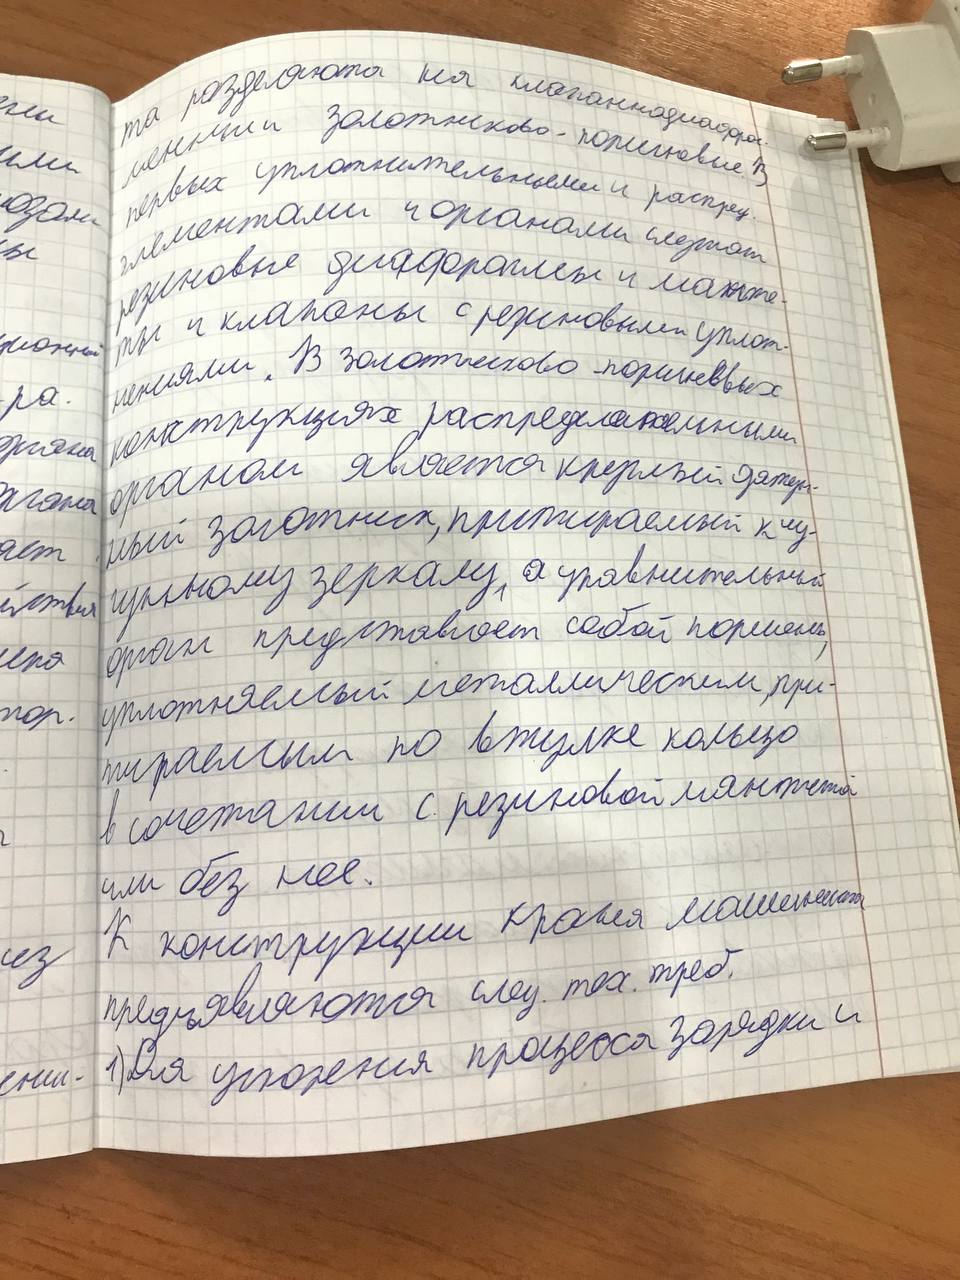 та разделяются на клапаннодиафраг-
менный золотниково-поршневые. В
первых уплотнительными и распред.
элементами и органами служат
резиновые диафрагмы и манже-
ты и клапаны с резиновыми уплот-
нениями. В золотниково-поршневых
конструкциях распределительными
органом является круглый
ный золотник, притираемый к чу-
гунному зеркалу, а уравнительный
орган представляет собой поршень,
уплотняемый металлическим, при-
тираемым по втулке кольцо
в сочетании с резиновой манжетой
или без нее.
К конструкции крана машиниста
предъявляются след. тех. треб.
1) Для ускорения процесса зарядки и
ра.
органа
органа
яет
йствия
тор.